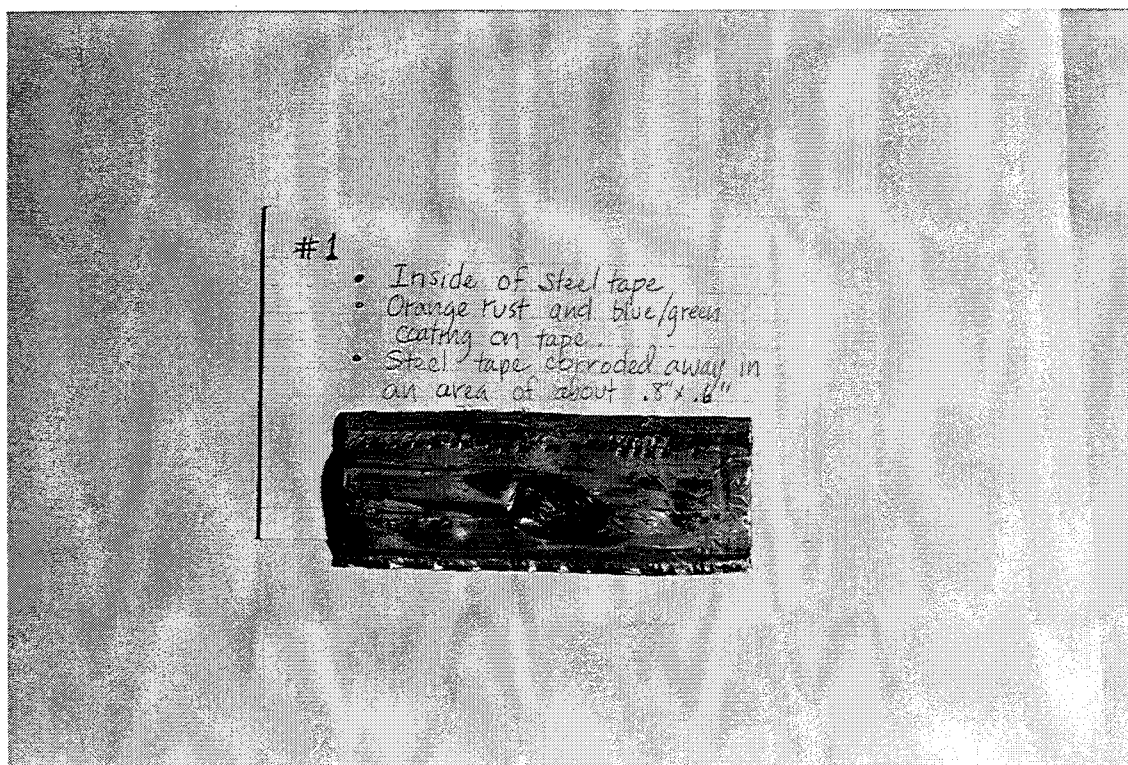 #1
• Inside of Steel tape
• Orange rust and blue/green
coating on tape.
• Steel tape corroded away in
an area of about .8"x.6"